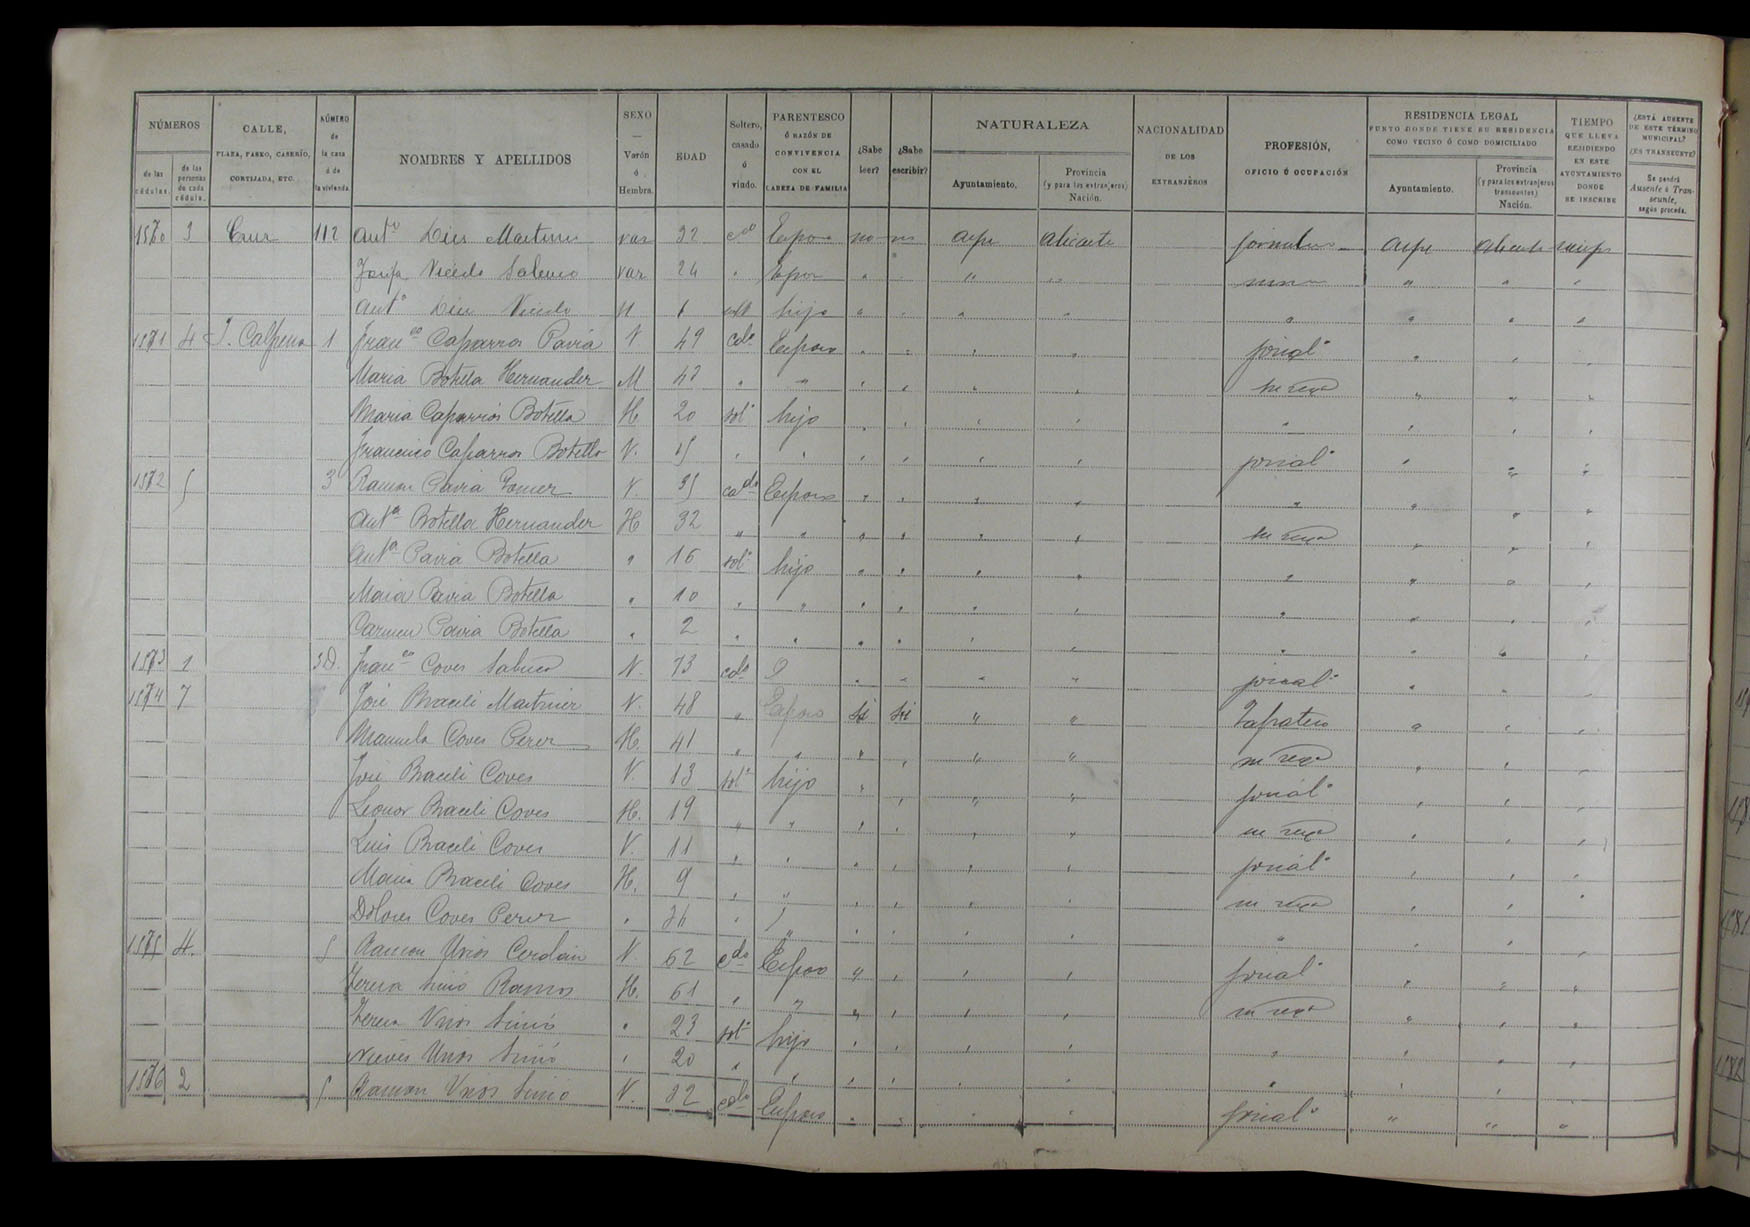 NÚMEROS
de las cédulas.
de las personas de cada cédula.
CALLE,
PLAZA, PASEO, CASERÍO, CORTIJADA, ETC.
NÚMERO de la casa ó de la vivienda.
NOMBRES Y APELLIDOS
SEXO — Varón ó Hembra.
EDAD
Soltero, casado ó viudo.
PARENTESCO Ó RAZÓN DE CONVIVENCIA CON EL CABEZA DE FAMILIA
¿Sabe leer?
¿Sabe escribir?
NATURALEZA
Ayuntamiento.
Provincia (y para los extranjeros) Nación.
NACIONALIDAD DE LOS EXTRANJEROS
PROFESIÓN,
OFICIO Ó OCUPACIÓN
RESIDENCIA LEGAL
PUNTO DONDE TIENE SU RESIDENCIA COMO VECINO Ó COMO DOMICILIADO
Ayuntamiento.
Provincia (y para los extranjeros transeuntes) Nación.
TIEMPO QUE LLEVA RESIDIENDO EN ESTE AYUNTAMIENTO DONDE SE INSCRIBE
¿ESTÁ AUSENTE DE ESTE TÉRMINO MUNICIPAL? ¿ES TRANSEUNTE?
Se pondrá Ausente ó Transeunte, según proceda.
1570 3 Cruz 112 Antº Dies Martines var 32 cdº Esposo no no Aspe Alicante jornalero Aspe Alicante siempre
Josefa Vicedo var 24 " " " " " " " "
Antº Dies Vicedo hijo " " " " " " " "
1571 4 J. Calpena 1 Franco Caparros Pavia V 49 cdo Esposo " " " " jornalº " " "
Maria Botella Hernandez M 43 " " " " " " su sexo " " "
Maria Caparrós Botella H 20 solº hijo " " " " " " " "
Francisco Caparros Botella V. 15 " " " " " " jornalº " " "
1572 5 3 Ramon Pavia Gomez V. 35 cado Esposo " " " " " " " "
Antª Botella Hernander H 32 " " " " " " su sexo " " "
Antª Pavia Botella " 16 solº hijo " " " " " " " "
Maria Pavia Botella " 10 " " " " " " " " " "
Carmen Pavia Botella " 2 " " " " " " " " " "
1573 1 3 D. Franco Coves V. 73 cdo " " " " jornalº " " "
1574 7 José Braceli Martinez V. 48 " Esposo Si Si " " Zapatero " " "
Manuela Coves Perez H. 41 " " " " " " su sexo " " "
José Braceli Coves V. 13 solº hijo " " " " jornalº " " "
Leonor Braceli Coves H. 19 " " " " " " su sexo " " "
Luis Braceli Coves V. 11 " " " " " " jornalº " " "
Maria Braceli Coves H. 9 " " " " " " su sexo " " "
Dolores Coves Perez " " " " " " " " " "
1575 4. 5 Ramon Urios Cerdán V. 62 cdo Esposo " " " " jornalº " " "
Teresa Ramos H. 61 " " " " " " su sexo " " "
Teresa Urios " 23 solº hijo " " " " " " " "
Nieves Urios " 20 " " " " " " " " " "
1576 2 5 Ramon Urios V. 32 cdo Esposo " " " " jornalº " " "